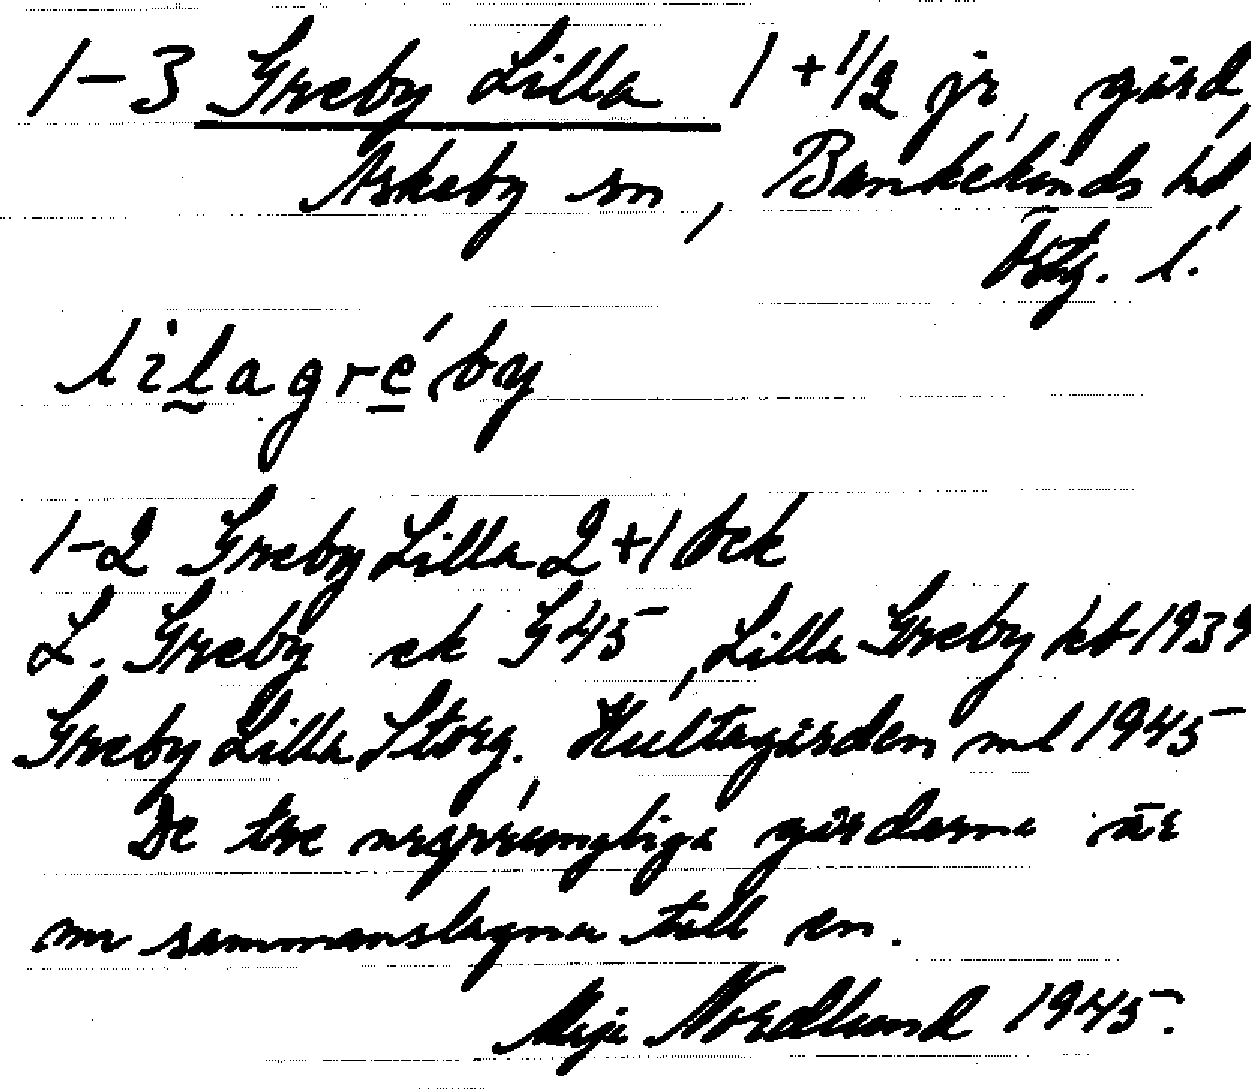 1-3 Greby Lilla 1+1/2 jr, gård,
Askeby sn, Bankekinds hd
Östg. l.
lilagré́by
1-2 Greby Lilla 2+1 bek
L. Greby ek G45, Lilla Greby kb 1939
Greby Lilla Storg. Hultagården ml 1945
De tre ursprungliga gårdarna är
nu sammanslagna till en.
Maja Nordlund 1945.